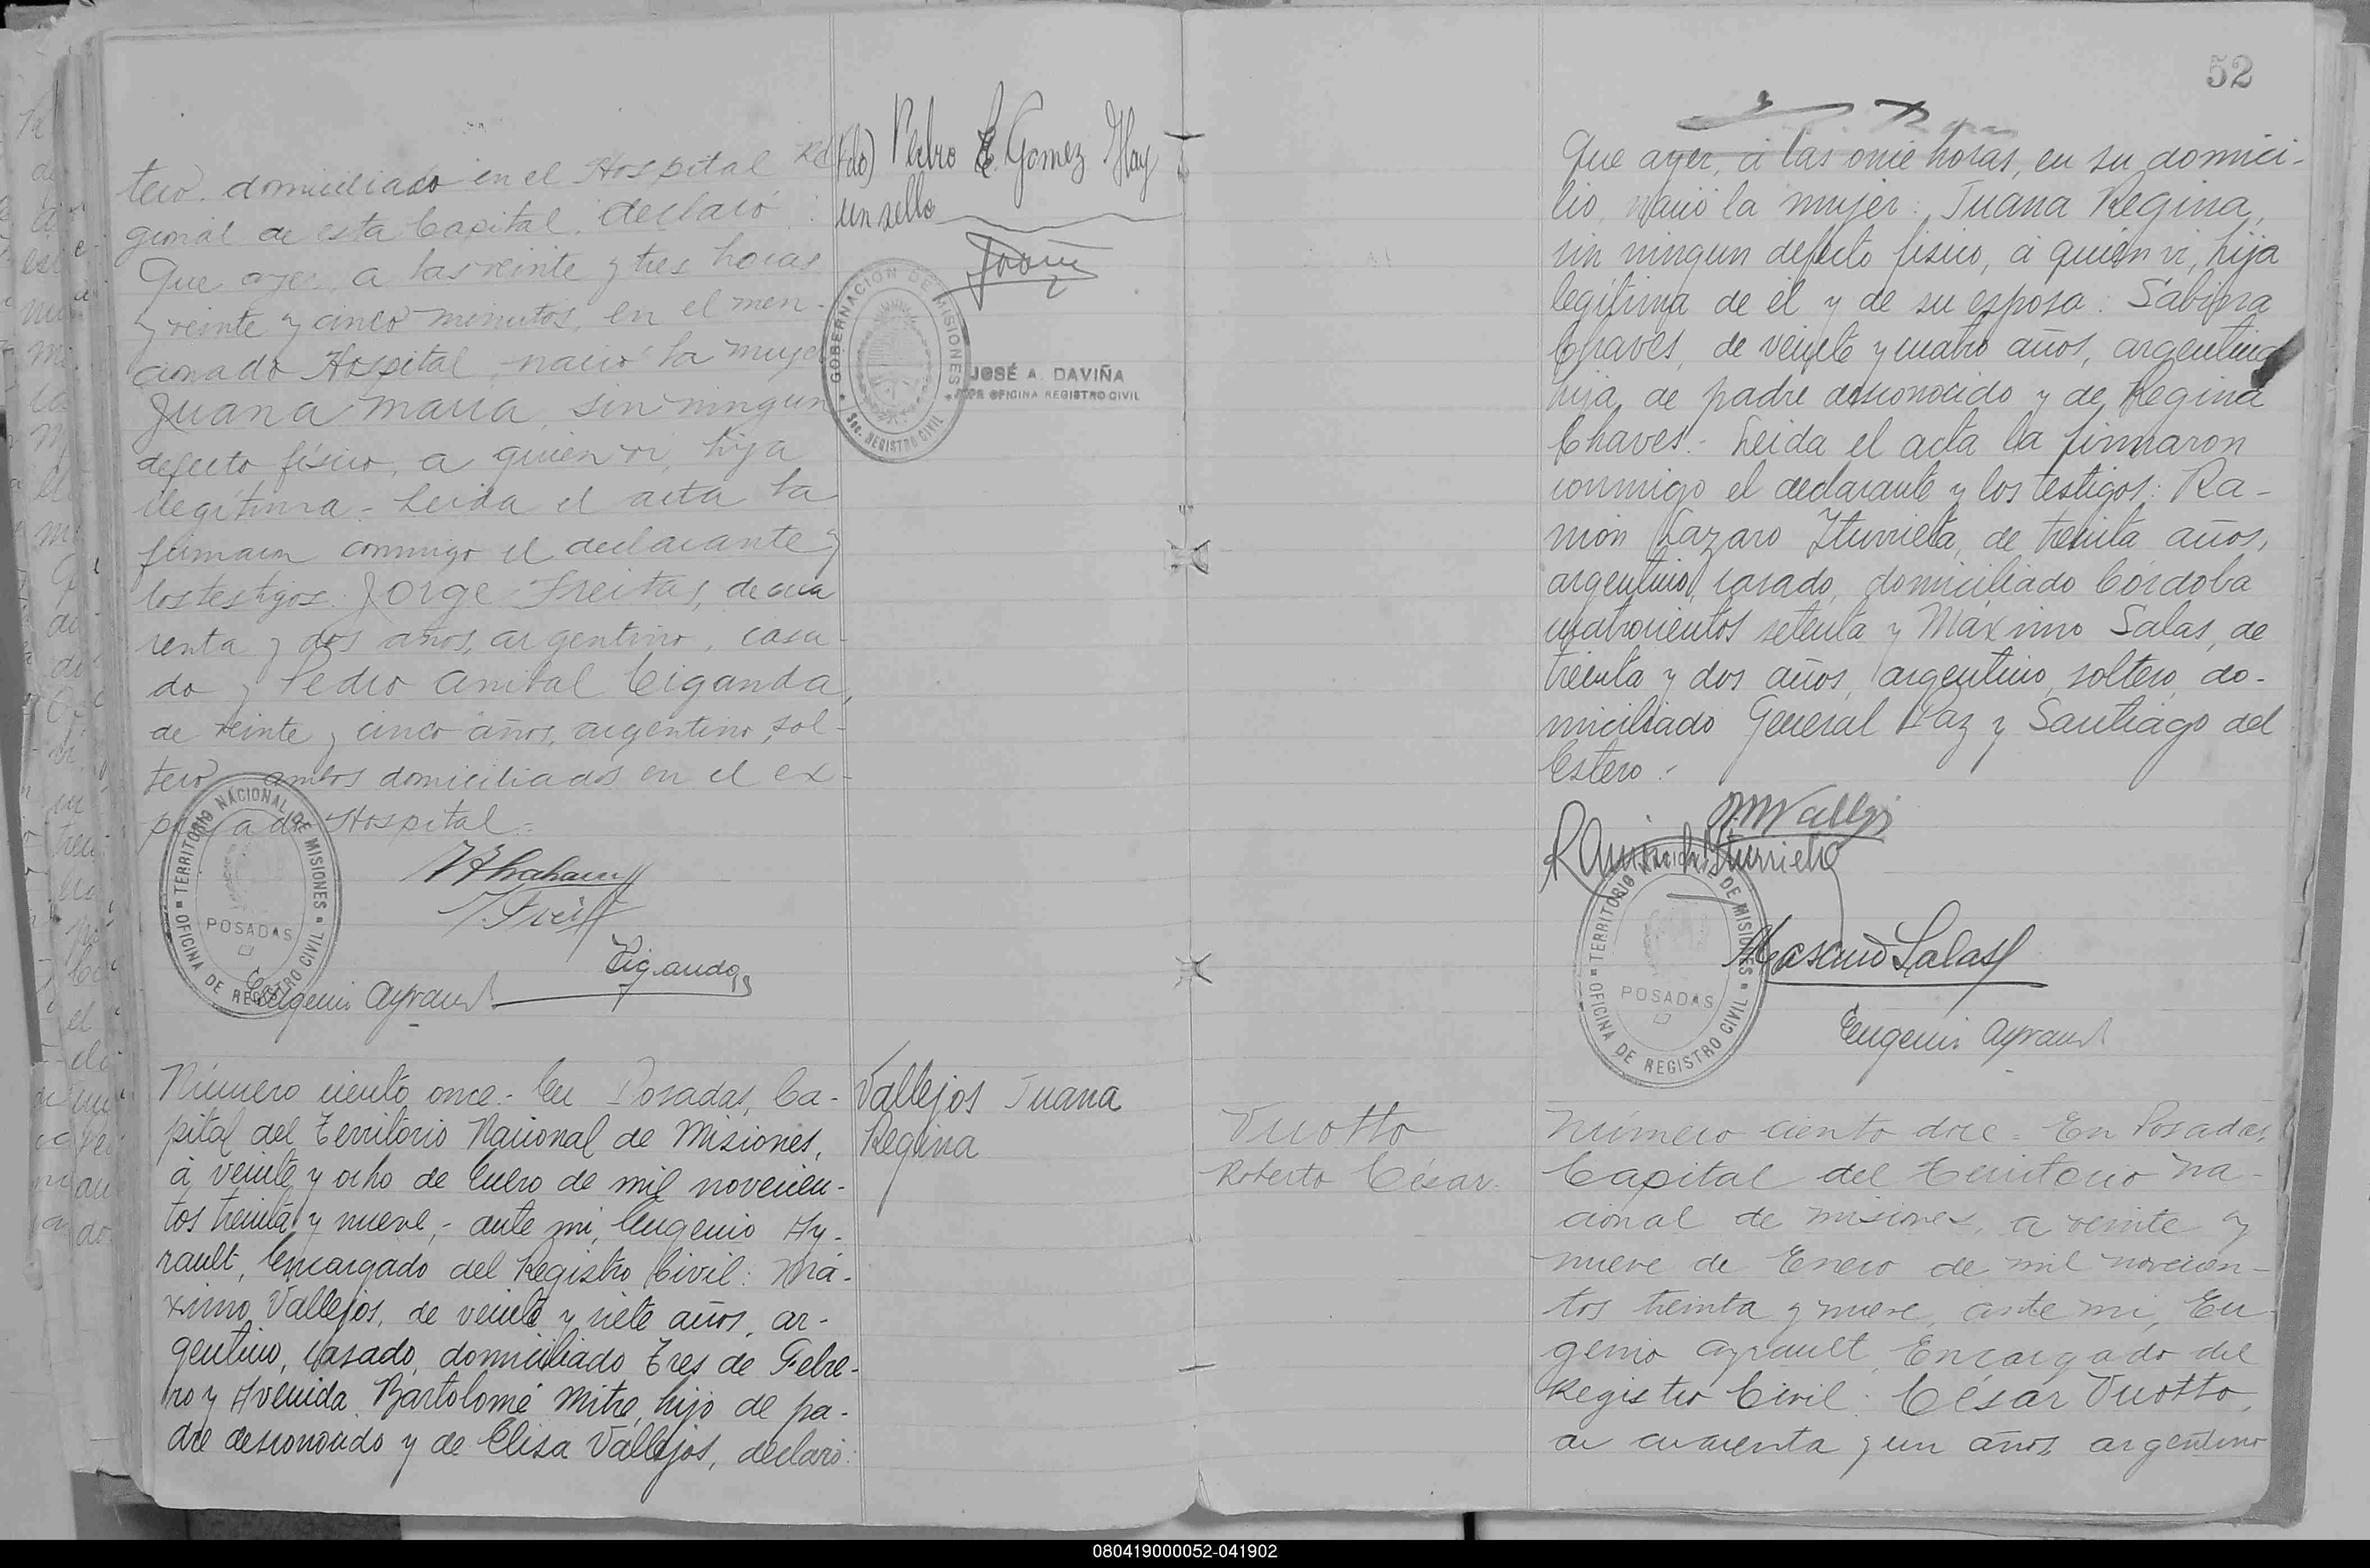 tero, domiciliado en el Hospital Re
gional de esta Capital, declaró:
Que ayer, a las veinte y tres horas
y veinte y cinco minutos, en el men-
cionado Hospital, nació la mujer
Juana María, sin ningun
defecto físico, a quien vi, hija
ilegítima - Leida el acta la
firmaron conmigo el declarante y
los testigos: Jorge Freitas, de cua
renta y dos años, argentino, casa-
do y Pedro Anibal Ciganda,
de veinte y cinco años, argentino, sol-
tero, ambos domiciliados en el ex-
presado Hospital.-
TERRITORIO NACIONAL DE MISIONES
OFICINA DE REGISTRO CIVIL
POSADAS
Ciganda
Eugenio Ayrault
Número ciento once.- En Posadas, Ca-
pital del Territorio Nacional de Misiones,
á veinte y ocho de Enero de mil novecien-
tos treinta y nueve,- ante mi, Eugenio Ay-
rault, Encargado del Registro Civil: Má-
ximo Vallejos, de veinte y siete años, ar-
gentino, casado, domiciliado Tres de Febre-
ro y Avenida Bartolomé Mitre, hijo de pa-
dre desconocido y de Elisa Vallejos, declaró:
(fdo) Pedro E. Gomez Hay
un sello
GOBERNACION DE MISIONES
Sec. REGISTRO CIVIL
JOSÉ A. DAVIÑA
JEFE OFICINA REGISTRO CIVIL
Vallejos Juana
Regina
52
Que ayer, á las once horas, en su domici-
lio, nació la mujer: Juana Regina,
sin ningun defecto físico, á quien vi, hija
legítima de él y de su esposa: Sabina
Chaves, de veinte y cuatro años, argentina
hija de padre desconocido y de Regina
Chaves.- Leida el acta la firmaron
conmigo el declarante y los testigos: Ra-
món Lazaro Iturrieta, de treinta años,
argentino, casado, domiciliado Córdoba
cuatrocientos setenta y Máximo Salas, de
treinta y dos años, argentino, soltero, do-
miciliado General Paz y Santiago del
Estero.-
M Vallejos
Ramón L Iturrieta
TERRITORIO NACIONAL DE MISIONES
OFICINA DE REGISTRO CIVIL
POSADAS
Maximo Salas
Eugenio Ayrault
Vuotto
Roberto César.
Número ciento doce = En Posadas,
Capital del Territorio Na-
cional de Misiones, a veinte y
nueve de Enero de mil novecien-
tos treinta y nueve, ante mi, Eu
genio Ayrault, Encargado del
Registro Civil: César Vuotto,
de cuarenta y un años, argentino
080419000052-041902